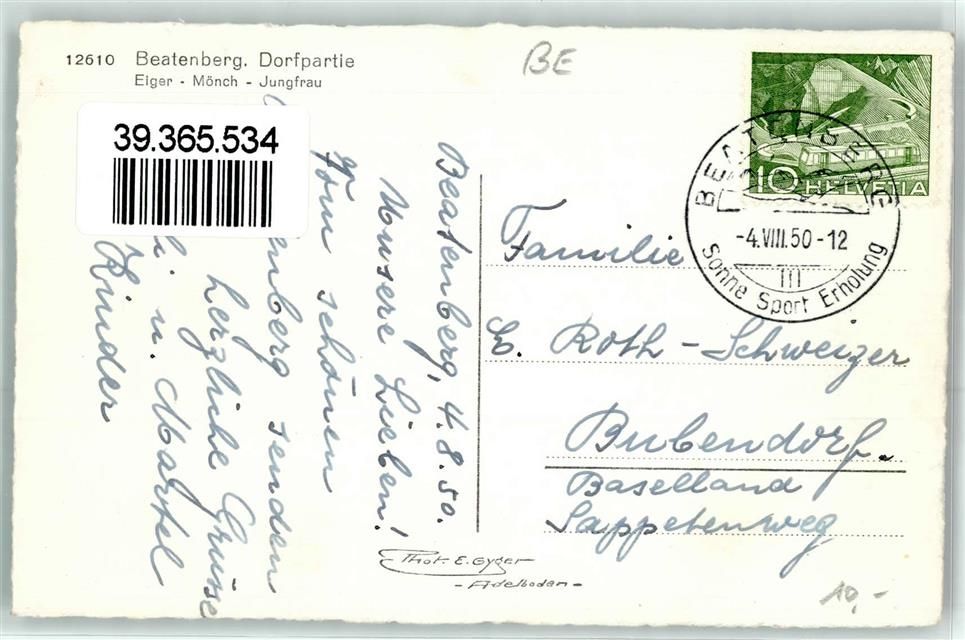 12610 Beatenberg. Dorfpartie
Eiger - Mönch - Jungfrau
BE
39.365.534
10 HELVETIA
BEATENBERG
-4.VIII.50-12
m
Sonne Sport Erholung
Beatenberg, 4.8.50.
Unsere Lieben!
Vom schönen
enberg senden
herzliche Grüsse
u. Martel
Kinder
Familie
E. Roth-Schweizer
Bubendorf.
Baselland
Sappetenweg
Phot. E. Gyger
- Adelboden -
10,-